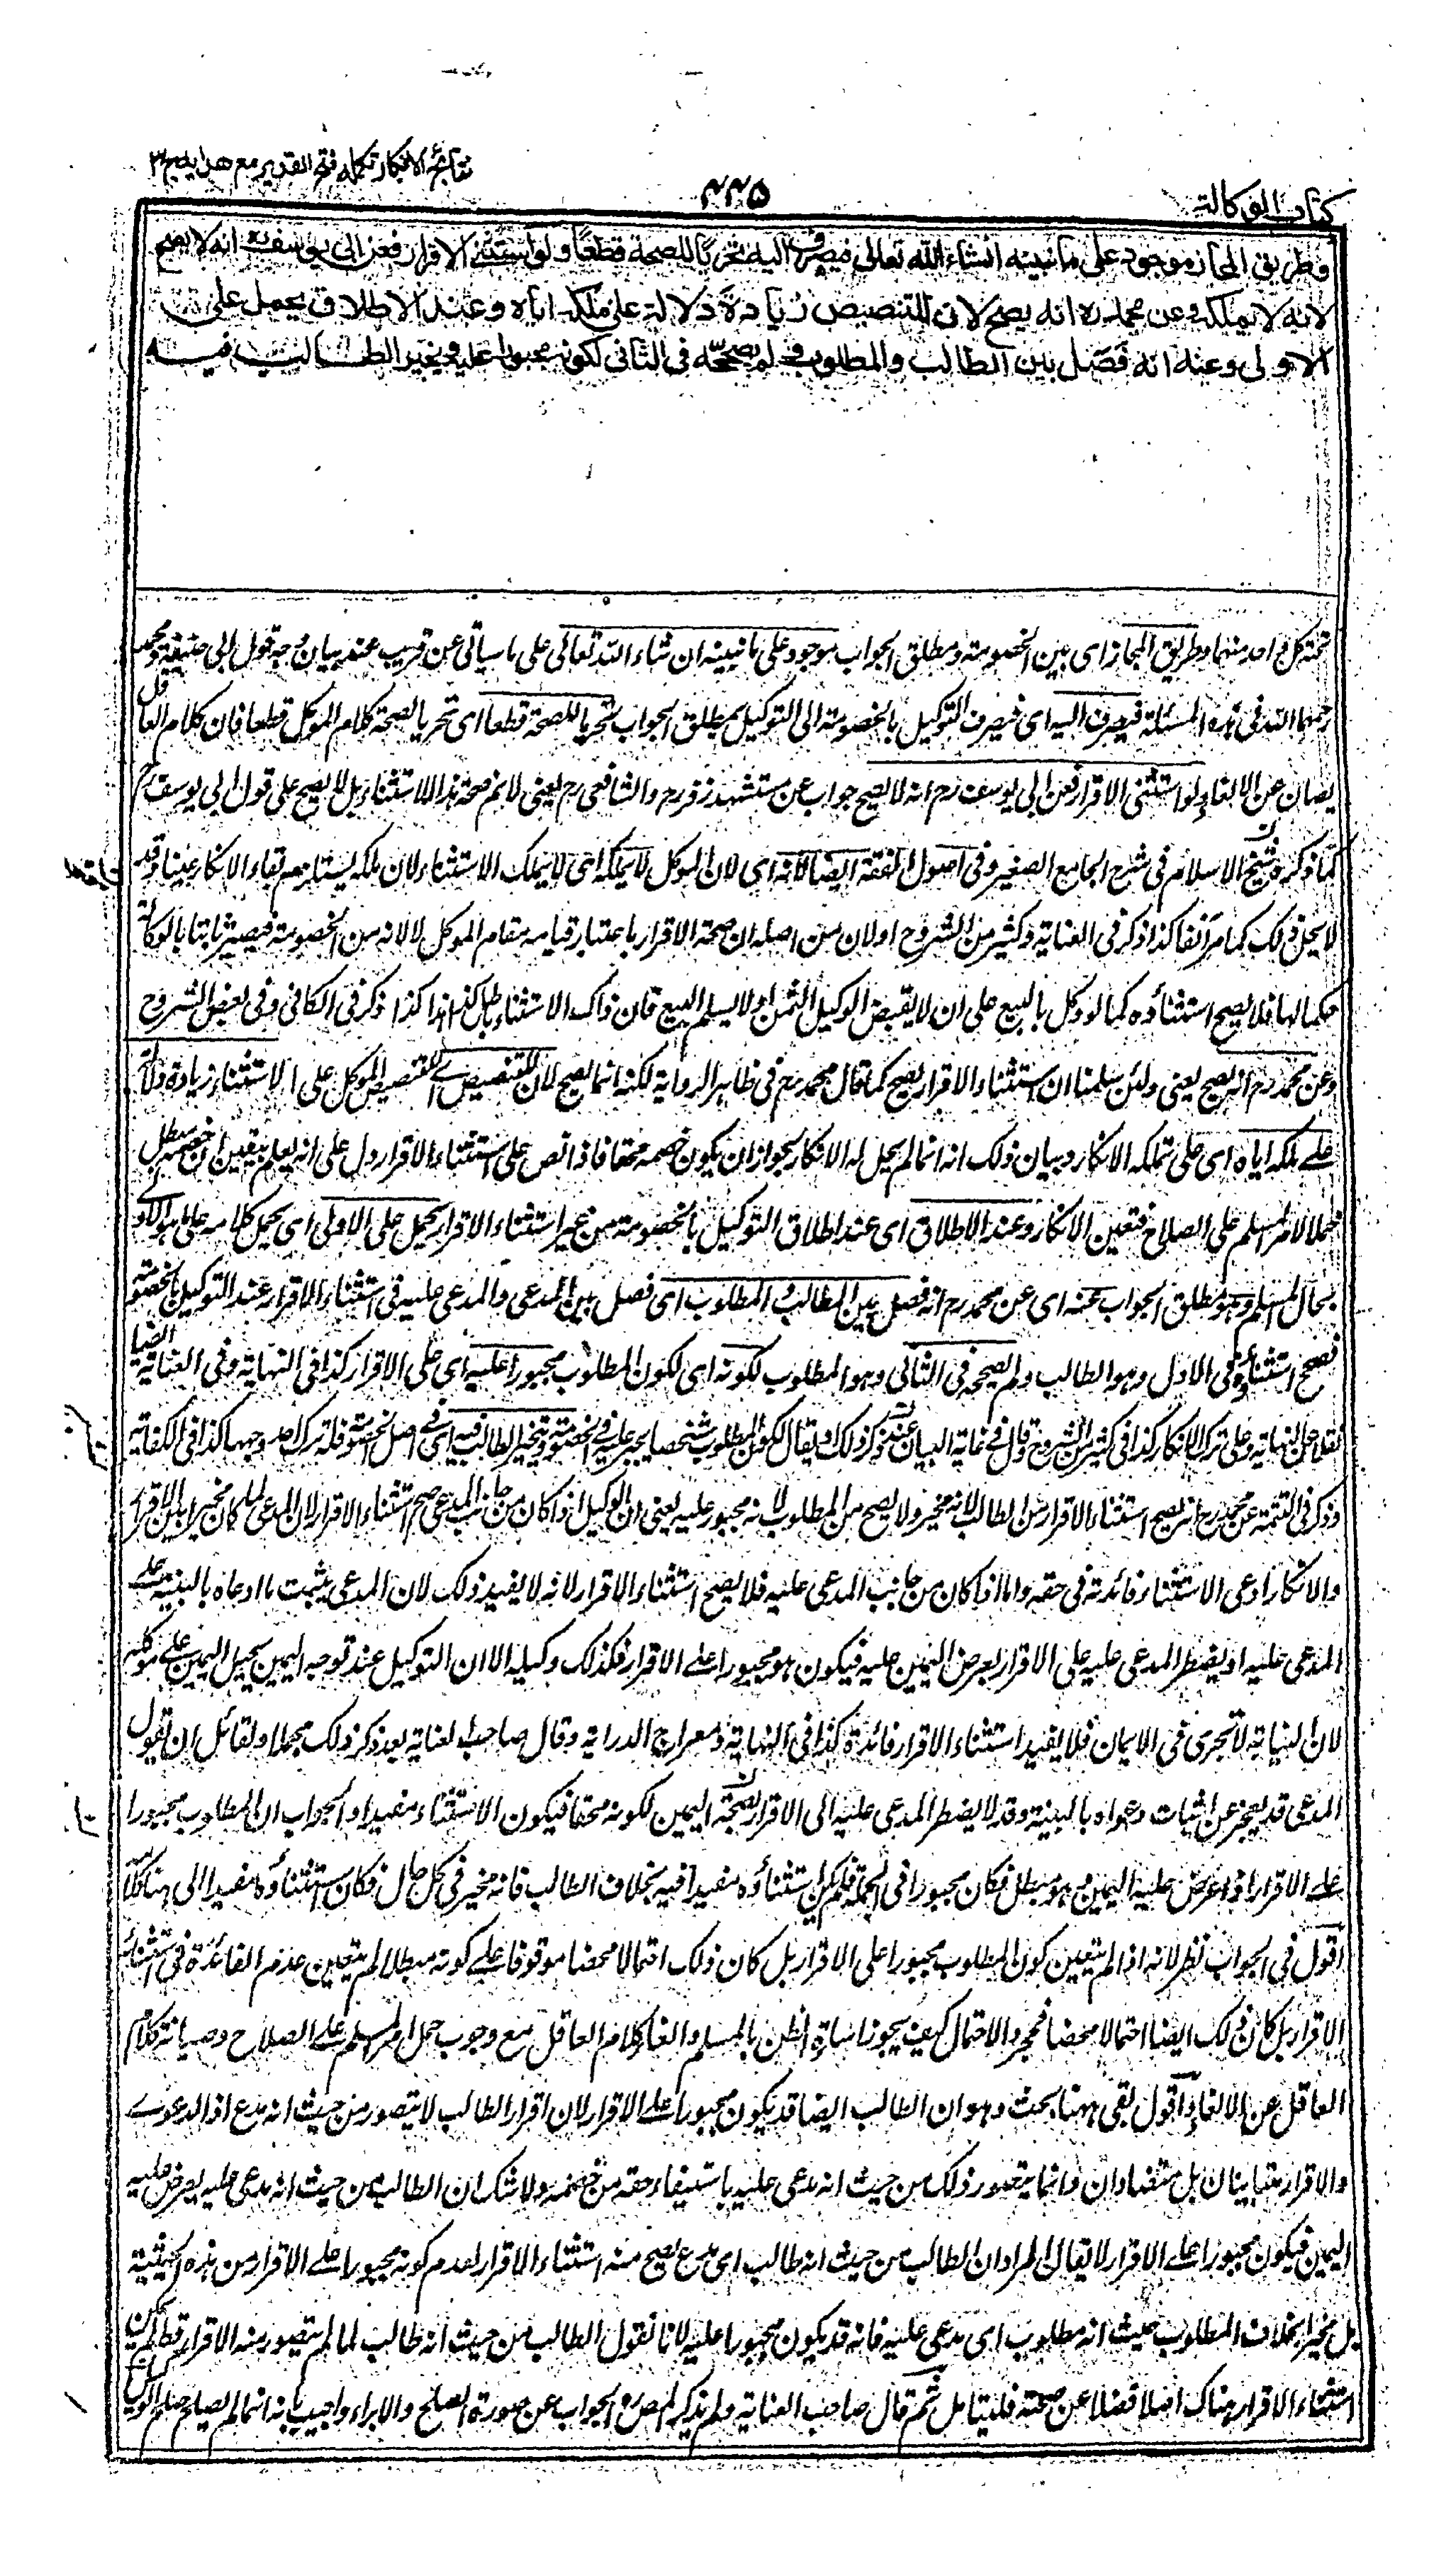 نتائج الافكار تكمله فتح القدير مع هدايه ج ٣
٤٤٥
كتاب الوكالة
وطريق المجاز موجود على ما نبينه انشاء الله تعالى فيصرف اليه تحريا للصحة قطعا ولو استثنى الاقرار فعن ابى يوسف ره انه لا يصح
لانه لا يملكه وعن محمد ره انه يصح لان للتنصيص زيادة دلالة على ملكه اياه وعند الاطلاق يحمل على
الاولى وعنه انه فصل بين الطالب والمطلوب ولم يصححه فى الثانى لكونه مجبورا عليه ويخير الطالب فيه
كل واحد منهما وطريق المجاز اى بين الخصومة ومطلق الجواب موجود على ما نبينه ان شاء الله تعالى على ما سياتى عن قريب عند بيان وجه قول ابى حنيفة ومحمد
رحمهما الله فى هذه المسئلة فيصرف اليه اى فيصرف التوكيل بالخصومة الى التوكيل بمطلق الجواب تحريا للصحة قطعا اى تحريا لصحة كلام الموكل قطعا فان كلام العاقل
يصان عن الالغاء ولو استثنى الاقرار فعن ابى يوسف رح انه لا يصح جواب عن مستشهد زفر رح والشافعى رح يعنى لا نم صحة هذا الاستثناء بل لا يصح على قول ابى يوسف رح
كما ذكره شيخ الاسلام فى شرح الجامع الصغير وفى اصول الفقه ايضا لانه اى لان الموكل لا يملكه اى لا يملك الاستثناء لان ملكه يستلزم بقاء الانكار عينا وقد
لا يحل ذلك كما مر آنفا كذا ذكر فى العناية وكثير من الشروح او لان من اصله ان صحة الاقرار باعتبار قيامه مقام الموكل لا لانه من الخصومة فيصير ثابتا بالوكالة
حكما لها فلا يصح استثناؤه كما لو وكل بالبيع على ان لا يقبض الوكيل الثمن او لا يسلم المبيع فان ذاك الاستثناء باطل كذا هذا كذا ذكر فى الكافى وفى بعض الشروح
وعن محمد رح انه يصح يعنى ولئن سلمنا ان استثناء الاقرار يصح كما قال محمد رح فى ظاهر الرواية لكنه انما يصح لان للتنصيص اى لتنصيص الموكل على الاستثناء زيادة دلالة
على ملكه اياه اى على تملكه الانكار وبيان ذلك انه انما لم يحل له الانكار لجواز ان يكون خصمه محقا فاذا نص على استثناء الاقرار دل على انه يعلم بيقين ان خصمه مبطل
حملا لامر المسلم على الصلاح فتعين الانكار وعند الاطلاق اى عند اطلاق التوكيل بالخصومة من غير استثناء الاقرار يحمل على الاولى اى يحمل كلامه على ما هو الاولى
بحال المسلم وهو مطلق الجواب وعنه اى عن محمد رح انه فصل بين الطالب والمطلوب اى فصل بين المدعى والمدعى عليه فى استثناء الاقرار عند التوكيل بالخصومة
فصح استثناؤه فى الاول وهو الطالب ولم يصححه فى الثانى وهو المطلوب لكونه اى لكون المطلوب مجبورا عليه اى على الاقرار كذا فى النهاية وفى العناية ايضا
نقلا عن النهاية وعلى ترك الانكار كذا فى كثير من الشروح وقال فى غاية البيان عند ذكر ذلك ويقال لكون المطلوب شخصا يجبر عليه فى الخصومة ويخير الطالب فيه اى فى اصل الخصومة فله ترك احد وجهيها كذا فى الكفاية
وذكر فى التتمة عن محمد رح انه يصح استثناء الاقرار من الطالب لانه مخير ولا يصح من المطلوب لانه مجبور عليه يعنى ان الوكيل اذا كان من جانب المدعى صح استثناء الاقرار لان المدعى لما كان مخيرا بين الاقرار
والانكار ادعى الاستثناء فائدته فى حقه واما اذا كان من جانب المدعى عليه فلا يصح استثناء الاقرار لانه لا يفيد ذلك لان المدعى يثبت ما ادعاه بالبينة على
المدعى عليه او يضطر المدعى عليه على الاقرار بعرض اليمين عليه فيكون هو مجبورا على الاقرار فكذلك وكيله الا ان التوكيل عند توجه اليمين يحيل اليمين على موكله
لان النيابة لا تجرى فى الايمان فلا يفيد استثناء الاقرار فائدة كذا فى النهاية ومعراج الدراية وقال صاحب العناية بعد ذكر ذلك مجملا ولقائل ان يقول
المدعى قد يعجز عن اثبات دعواه بالبينة وقد لا يضطر المدعى عليه الى الاقرار اليمين لكونه محقا فيكون الاستثناء مفيدا والجواب ان المطلوب مجبور
على الاقرار اذا عرض عليه اليمين وهو مبطل فكان مجبورا فى الجملة فلم يكن استثناؤه مفيدا فيه بخلاف الطالب فانه مخير فى كل حال فكان استثناؤه مفيدا الى هنا كلامه
اقول فى الجواب نظر لانه اذا لم يتعين كون المطلوب مجبورا على الاقرار بل كان ذلك احتمالا محضا موقوفا على كونه مبطلا لم يتعين عدم الفائدة فى استثناء
الاقرار بل كان ذلك ايضا احتمالا محضا فمجرد الاحتمال كيف يجوز اساءة الظن بالمسلم والغاء كلام العاقل مع وجوب حمل امر المسلم على الصلاح وصيانة كلام
العاقل عن الالغاء واقول بقى ههنا بحث وهو ان الطالب ايضا قد يكون مجبورا على الاقرار لان اقرار الطالب لا يتصور من حيث انه مدع اذ الدعوى
والاقرار متباينان بل متضادان وانما يتصور ذلك من حيث انه مدعى عليه باستيفاء حقه من خصمه ولا شك ان الطالب من حيث انه مدعى عليه يعرض عليه
اليمين فيكون مجبورا على الاقرار لا يقال المراد ان الطالب من حيث انه طالب اى مدع يصح منه استثناء الاقرار لعدم كونه مجبورا على الاقرار من هذه الحيثية
بل مخيرا بخلاف المطلوب حيث انه مطلوب اى مدعى عليه فانه قد يكون مجبورا عليه لانا نقول الطالب من حيث انه طالب لما لم يتصور منه الاقرار قط لم يكن
استثناء الاقرار هناك اصلا فضلا عن صحته فليتامل ثم قال صاحب العناية ولم يذكر المص رح الجواب عن صورة الصلح والابراء واجيب بانه انما لم يصلح صلح الوكيل